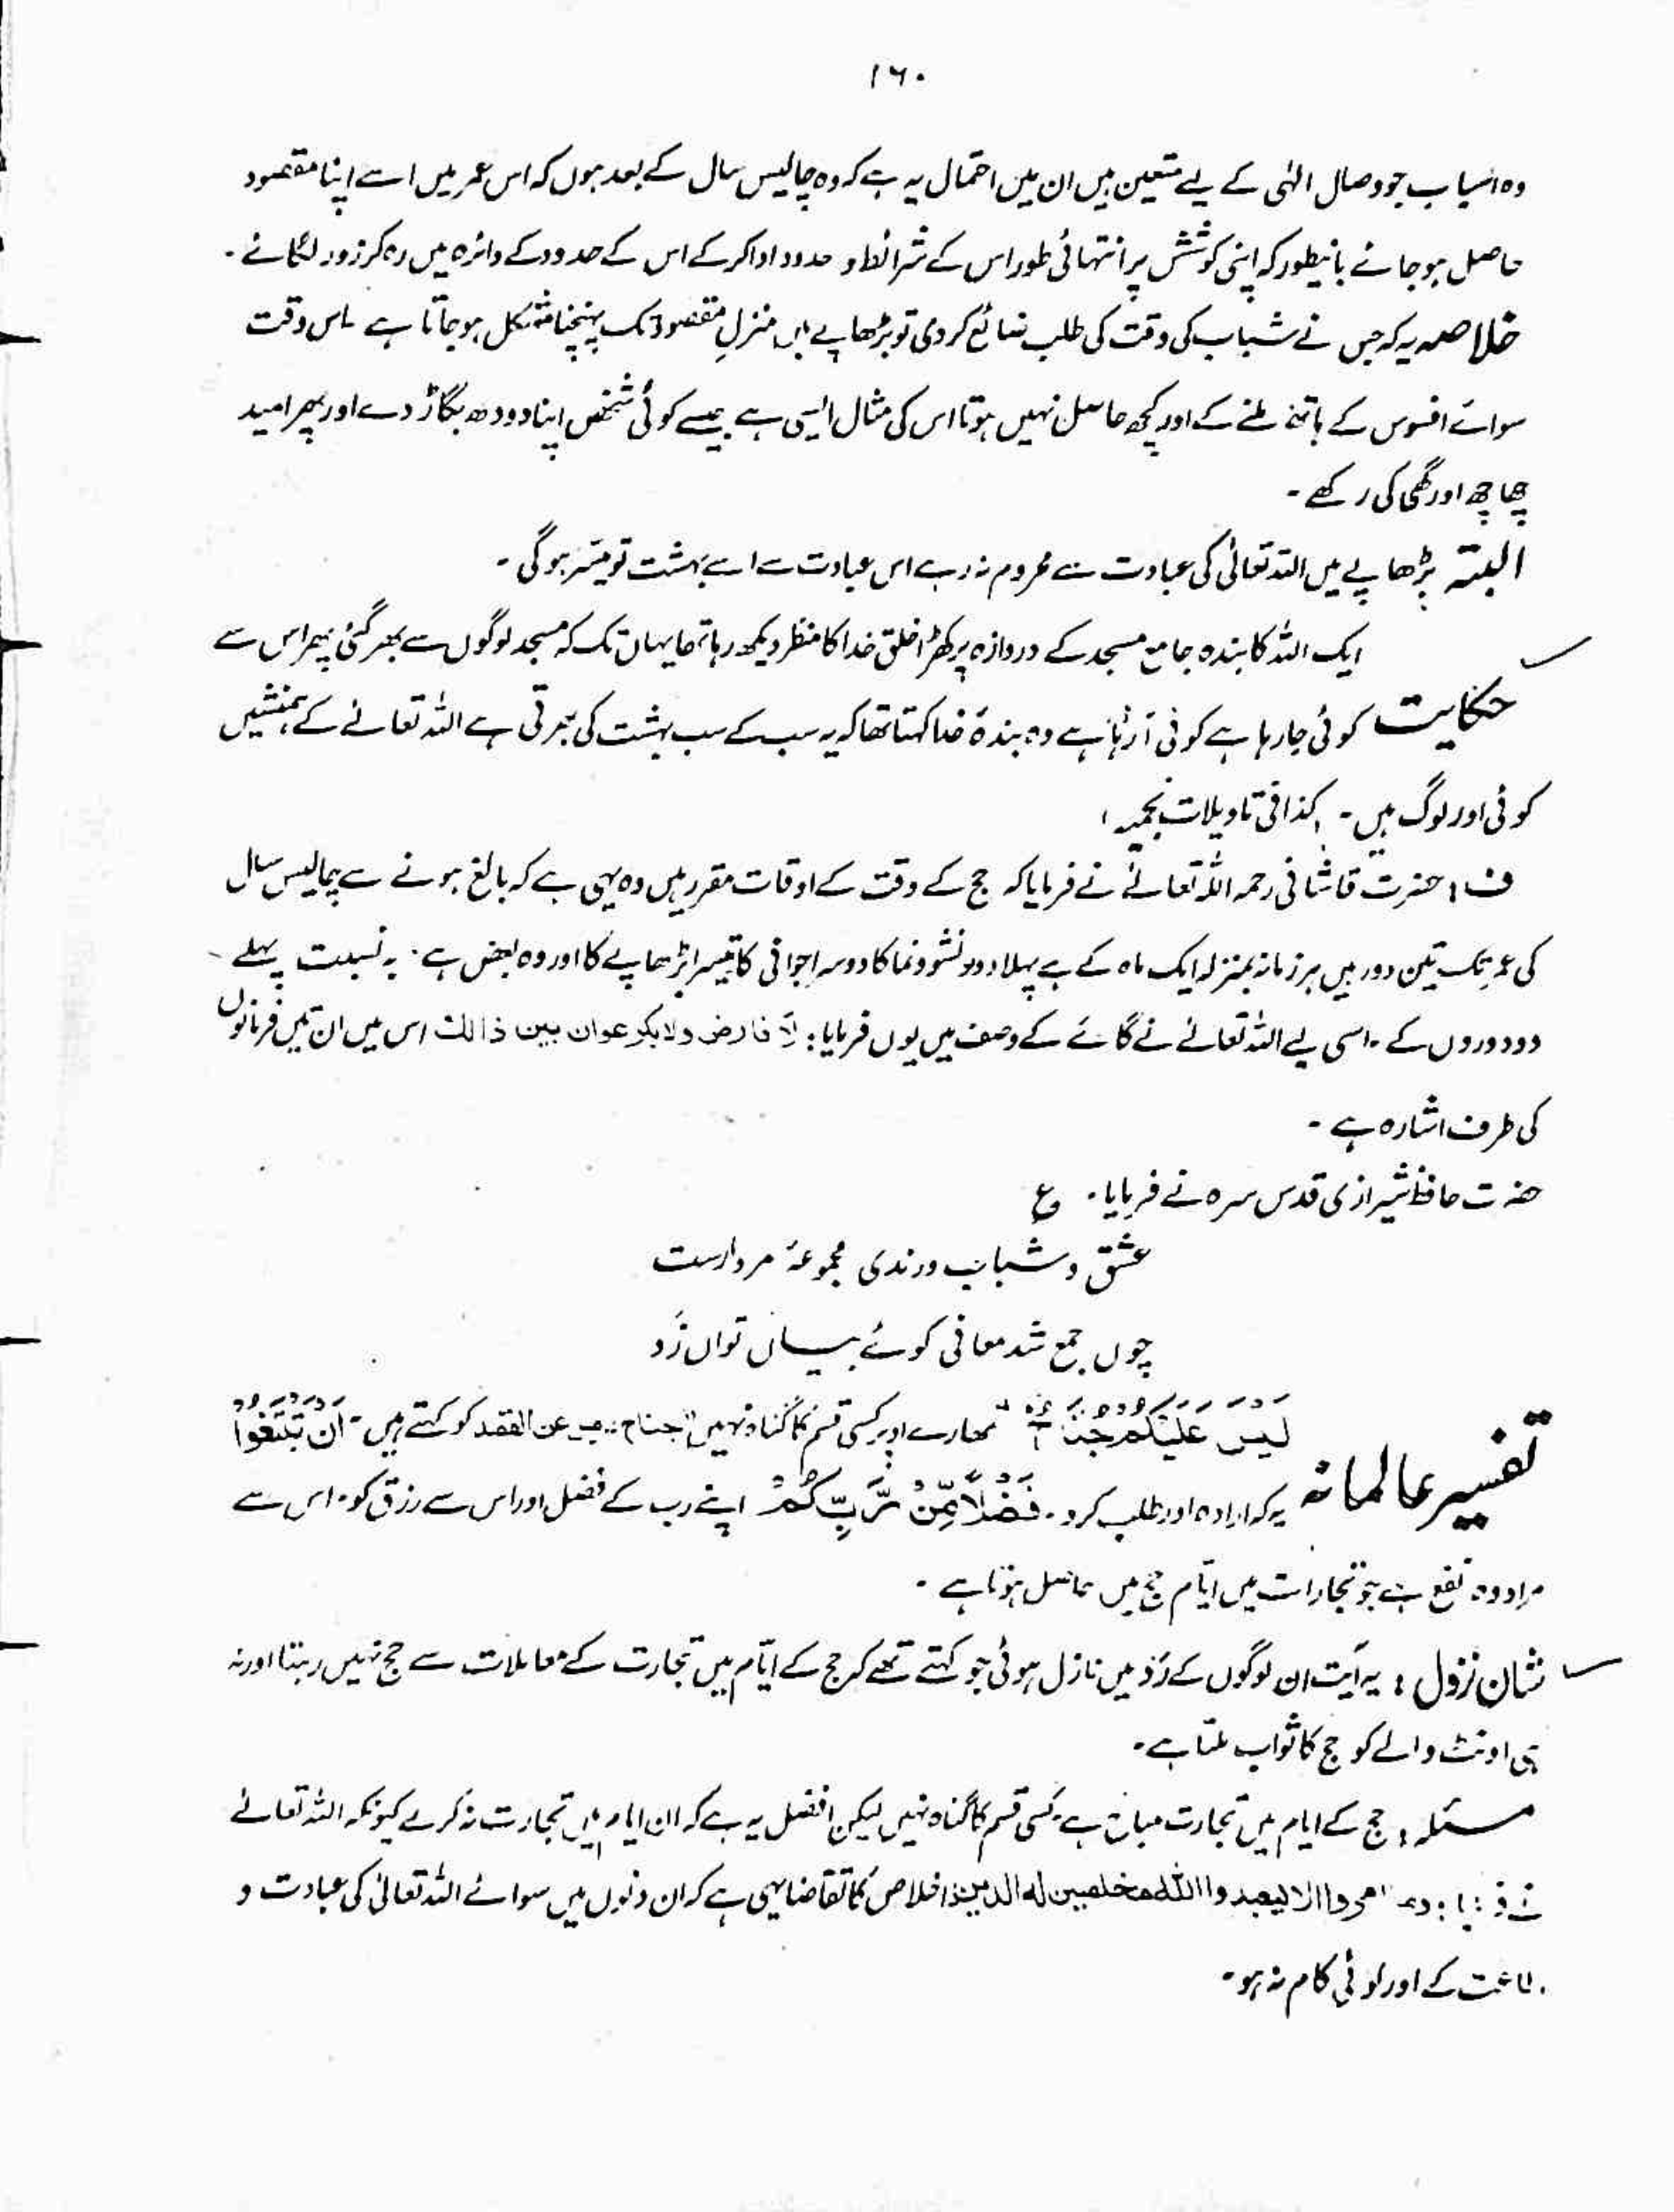 ۱۶۰
وہ اسباب جو وصال الٰہی کے لیے متعین ہیں ان میں احتمال یہ ہے کہ وہ چالیس سال کے بعد ہوں کہ اس عمر میں اسے اپنا مقصود
حاصل ہو جائے بانیطور کہ اپنی کوشش پر انتہائی طور اس کے شرائط و حدود ادا کر کے اس کے حدود کے دائرہ میں رہ کر زور لگائے۔
خلاصہ یہ کہ جس نے شباب کی وقت کی طلب ضائع کر دی تو بڑھاپے میں منزلِ مقصود تک پہنچنا مشکل ہو جاتا ہے ۔ اس وقت
سوائے افسوس کے ہاتھ ملنے کے اور کچھ حاصل نہیں ہوتا اس کی مثال ایسی ہے جیسے کوئی شخص اپنا دودھ بگاڑ دے اور پھر امید
چھاچھ اور گھی کی رکھے۔
البتہ بڑھاپے میں اللہ تعالیٰ کی عبادت سے محروم نہ رہے اس عبادت سے اسے بہشت تو میسر ہو گی۔
ایک اللہ کا بندہ جامع مسجد کے دروازہ پر کھڑا خلق خدا کا منظر دیکھ رہا تھا یہاں تک کہ مسجد لوگوں سے بھر گئی پھر اس سے
حکایت کوئی جا رہا ہے کوئی آ رہا ہے وہ بندۂ خدا کہتا تھا کہ یہ سب کے سب بہشت کی بھرتی ہے اللہ تعالےٰ کے ہمنشیں
کوئی اور لوگ ہیں۔ کذا فی تاویلات نجمیہ،
ف: حضرت قاشانی رحمہ اللہ تعالےٰ نے فرمایا کہ حج کے وقت کے اوقات مقرر ہیں وہ یہی ہے کہ بالغ ہونے سے چالیس سال
کی عمر تک تین دور ہیں ہر زمانہ بمنزلہ ایک ماہ کے ہے پہلا دور نشوونما کا دوسرا جوانی کا تیسرا بڑھاپے کا اور وہ بعض ہے۔ بہ نسبت پہلے
دو دوروں کے ۔ اسی لیے اللہ تعالےٰ نے گائے کے وصف میں یوں فرمایا: لا فارض ولا بکر عوان بین ذالک اس میں ان تین فرمانوں
کی طرف اشارہ ہے۔
حضرت حافظ شیرازی قدس سرہ نے فرمایا۔ ع
عشق و شباب و رندی مجموعۂ مرداست
چوں جمع شد معانی گوئے بیاں تواں زَد
لَيْسَ عَلَيْكُمْ جُنَاحٌ تمھارے اوپر کسی قسم کا گناہ نہیں "جناح عن القصد کو کہتے ہیں۔ اَنْ تَبْتَغُوْا
تفسیر عالمانہ یہ کہ ارادہ اور طلب کرو۔ فَضْلًا مِّنْ رَّبِّكُمْ اپنے رب کے فضل اور اس سے رزق کو۔ اس سے
مراد وہ نفع ہے جو تجارات میں ایام حج میں حاصل ہوتا ہے۔
شان نزول: یہ آیت ان لوگوں کے رَد میں نازل ہوئی جو کہتے تھے کہ حج کے ایام میں تجارت کے معاملات سے حج نہیں رہتا اور نہ
ہی اونٹ والے کو حج کا ثواب ملتا ہے۔
مسئلہ: حج کے ایام میں تجارت مباح ہے کسی قسم کا گناہ نہیں لیکن افضل یہ ہے کہ ان ایام میں تجارت نہ کرے کیونکہ اللہ تعالےٰ
نے فرمایا: وما امروا الا لیعبدوا اللہ مخلصین لہ الدین اخلاص کا تقاضا یہی ہے کہ ان دنوں میں سوائے اللہ تعالیٰ کی عبادت و
طاعت کے اور کوئی کام نہ ہو۔